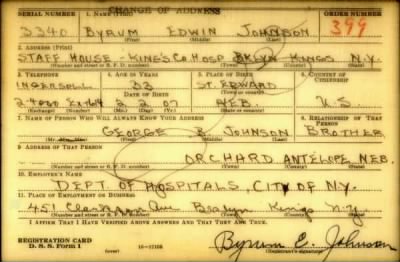 CHANGE OF ADDRESS
SERIAL NUMBER 1. NAME (Print) ORDER NUMBER
3340 BYRUM EDWIN JOHNSON 399
(First) (Middle) (Last)
2. ADDRESS (Print)
STAFF HOUSE - KINGS Co. HOSP BKLYN KINGS N.Y.
(Number and street or R. F. D. number) (Town) (County) (State)
3. TELEPHONE 4. AGE IN YEARS 5. PLACE OF BIRTH 6. COUNTRY OF CITIZENSHIP
INGERSOLL 33 ST. EDWARD
(Town or county)
2-4000 2 2 07 NEB. U.S.
(State or country)
7. NAME OF PERSON WHO WILL ALWAYS KNOW YOUR ADDRESS 8. RELATIONSHIP OF THAT PERSON
GEORGE B. JOHNSON BROTHER
(First) (Middle) (Last)
9. ADDRESS OF THAT PERSON
ORCHARD ANTELOPE NEB.
(Number and street or R. F. D. number) (Town) (County) (State)
10. EMPLOYER'S NAME
DEPT. OF HOSPITALS, CITY OF N.Y.
11. PLACE OF EMPLOYMENT OR BUSINESS
451 Clarkson Ave Brooklyn Kings N.Y.
(Number and street or R. F. D. number) (Town) (County) (State)
I AFFIRM THAT I HAVE VERIFIED ABOVE ANSWERS AND THAT THEY ARE TRUE.
REGISTRATION CARD
D. S. S. Form 1 16-17105
Byrum E. Johnson
(Registrant's signature)